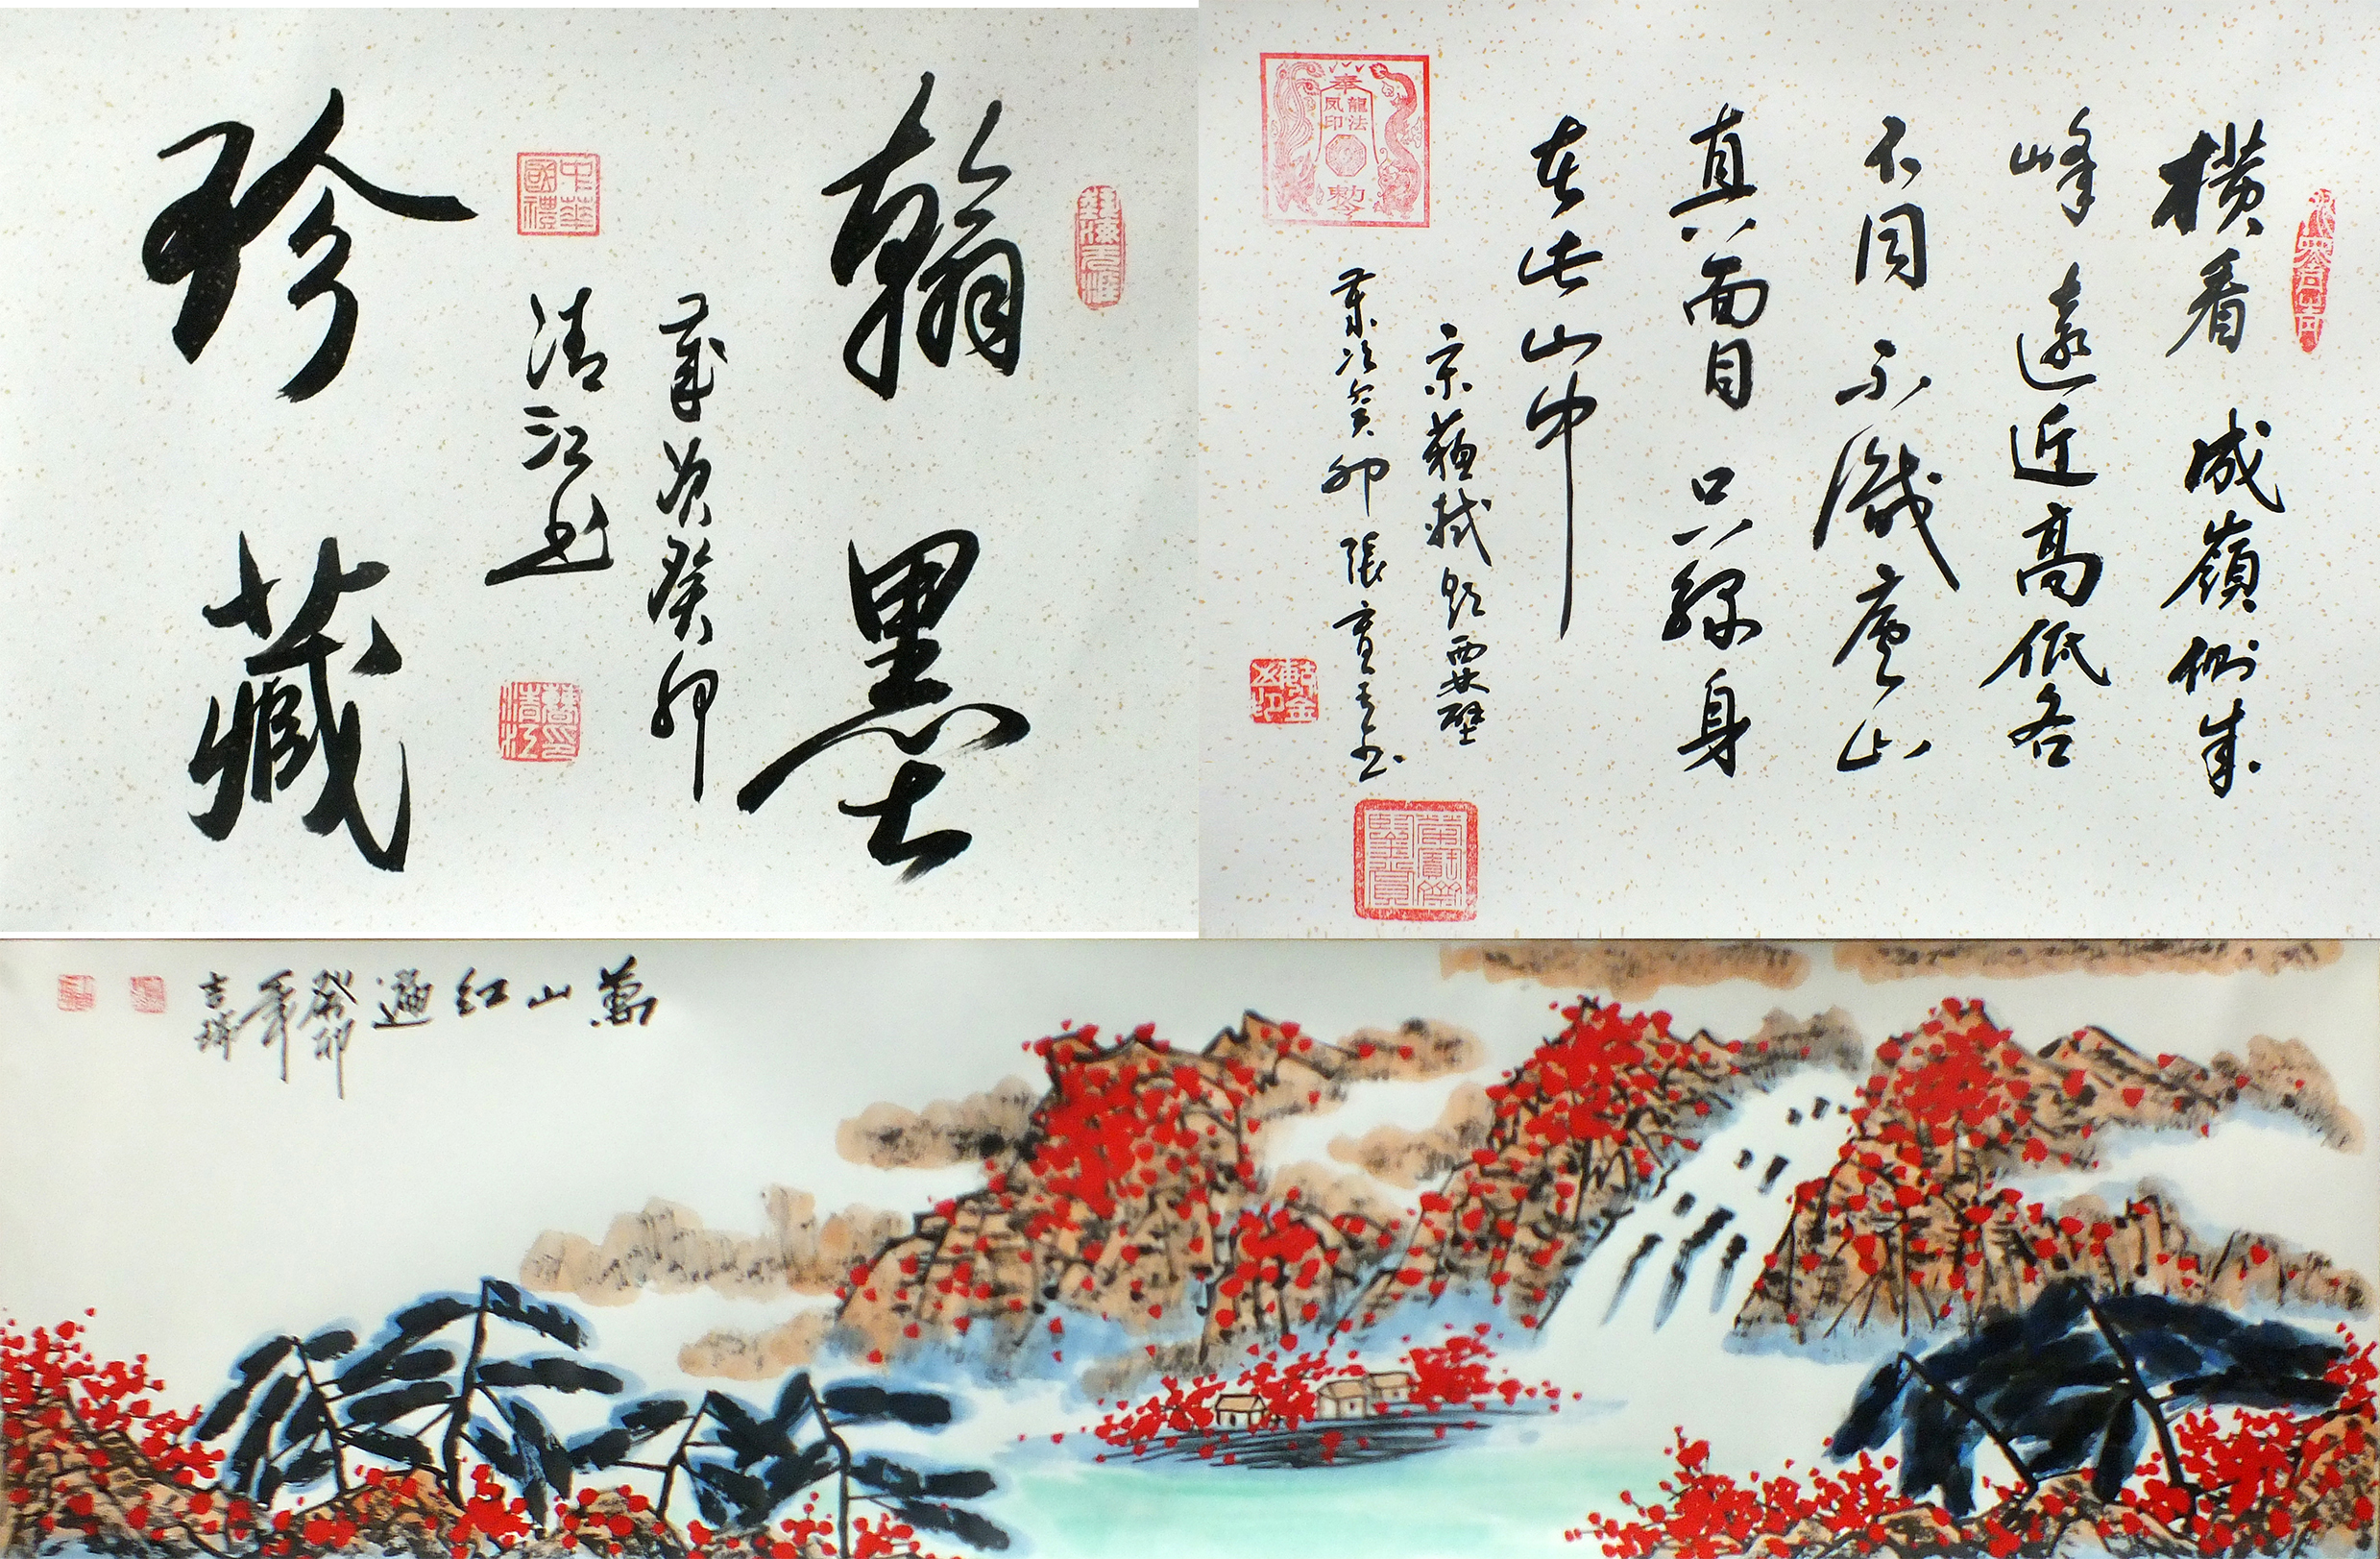 翰墨
歲次癸卯
清江书
珍藏
中華國禮
横看成嶺側成
峰遠近高低各
不同不識廬山
真面目只緣身
在此山中
宋蘇軾題西林壁
歲次癸卯張
奉
龍法
凤印
敕令
萬山红遍
癸卯
年
吉瑞